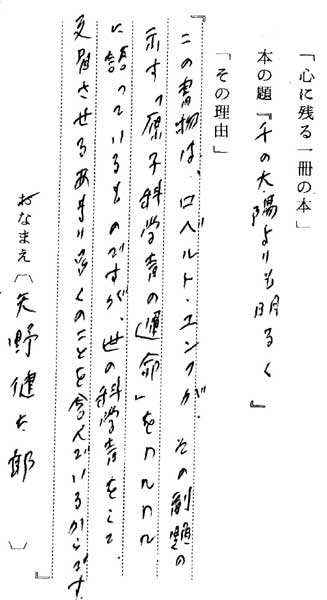 「心に残る一冊の本」
本の題『千の太陽よりも明るく』
「その理由」
『この書物は、ロベルト・ユンクが、その副題の
示す「原子科学者の運命」をわれわれ
に語っているものですが、世の科学者をして
反省させるあまり多くのことを含んでいるからです。』
おなまえ〔矢野健太郎〕